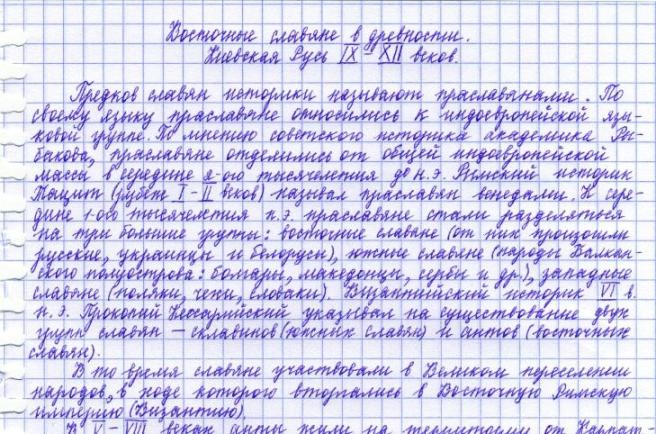 Восточные славяне в древности.
Киевская Русь IX – XII веков.
Предков славян историки называют праславянами. По
своему языку праславяне относились к индоевропейской язы-
ковой группе. По мнению советского историка академика Ры-
бакова, праславяне отделились от общей индоевропейской
массы в середине 2-ого тысячелетия до н.э. Римский историк
Тацит (рубеж I – II веков) называл праславян венедами. К сере-
дине 1-ого тысячелетия н.э. праславяне стали разделяться
на три большие группы: восточные славяне (от них произошли
русские, украинцы и белорусы), южные славяне (народы Балкан-
ского полуострова: болгары, македонцы, сербы и др.), западные
славяне (поляки, чехи, словаки). Византийский историк VI в.
н.э. Прокопий Кессарийский указывал на существование двух
групп славян – склавинов (южных славян) и антов (восточных
славян).
В то время славяне участвовали в Великом переселении
народов, в ходе которого вторгались в Восточную Римскую
империю (Византию).
В V – VIII веках анты жили на территории от Карпат-